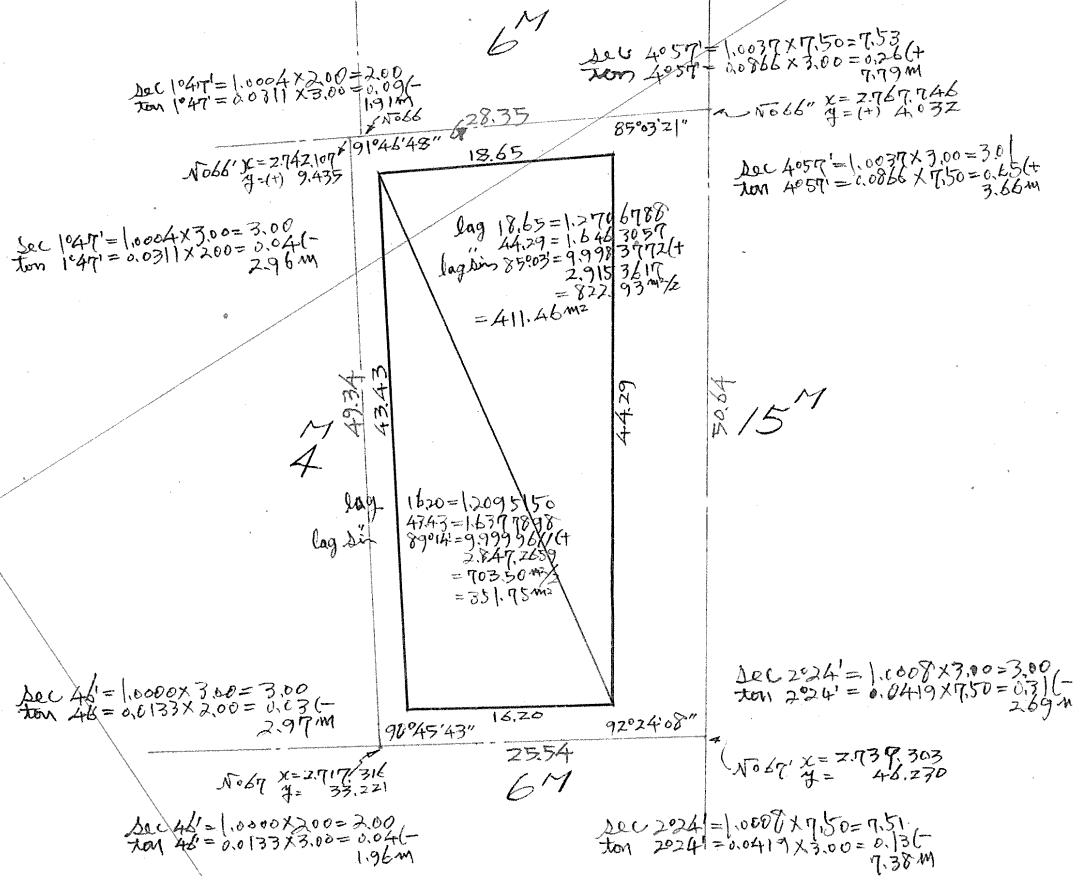 6M
sec 1°47' = 1.0004 × 2.00 = 2.00
tan 1°47' = 0.0311 × 3.00 = 0.09(-
1.91m
No66
sec 4°57' = 1.0037 × 7.50 = 7.53
tan 4°57' = 0.0866 × 3.00 = 0.26(+
7.79m
No66" x = 2.767.746
y = (+) 4.032
28.35
91°46'48"
85°03'21"
No66' x = 2.742.107
y = (+) 9.435
18.65
sec 4°57' = 1.0037 × 3.00 = 3.01
tan 4°57' = 0.0866 × 7.50 = 0.65(+
3.66m
sec 1°47' = 1.0004 × 3.00 = 3.00
tan 1°47' = 0.0311 × 2.00 = 0.04(-
2.96m
lag 18.65 = 1.2706788
" 44.29 = 1.6463057
lag sin 85°03' = 9.9983772(+
2.9153617
= 822.93m²/2
= 411.46m²
49.34
43.43
44.29
50.64
4M
15M
lag 16.20 = 1.2095150
" 43.43 = 1.6377898
lag sin 89°14' = 9.9999611(+
2.847.2659
= 703.50m²/2
= 351.75m²
sec 46' = 1.0000 × 3.00 = 3.00
tan 46' = 0.0133 × 2.00 = 0.03(-
2.97m
sec 2°24' = 1.0008 × 3.00 = 3.00
tan 2°24' = 0.0419 × 7.50 = 0.31(-
2.69m
16.20
90°45'43"
92°24'08"
25.54
6M
No67 x = 2.717.316
y = 33.221
No67' x = 2.739.303
y = 46.230
sec 46' = 1.0000 × 2.00 = 2.00
tan 46' = 0.0133 × 3.00 = 0.04(-
1.96m
sec 2°24' = 1.0008 × 7.50 = 7.51
tan 2°24' = 0.0419 × 3.00 = 0.13(-
7.38m